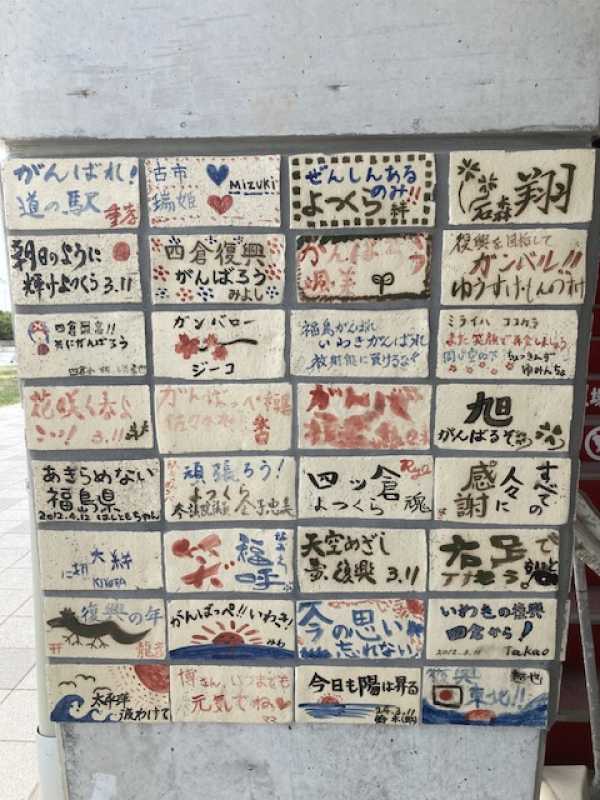 がんばれ!
道の駅
古市
瑞姫
Mizuki
ぜんしんある
のみ!!
よつくら 絆
石森 翔
朝日のように
輝けよつくら 3.11
四倉復興
がんばろう
みよし
がんばろう
颯美
復興を目指して
ガンバル!!
ゆうすけ しんのすけ
四倉
共にがんばろう
ガンバロー
ジーコ
福島がんばれ
いわきがんばれ
放射能に負けるな
ミライハ ココカラ
また笑顔で再会しましょう
同じ空の下
ゆみんちょ
花咲く春よ
こい! 3.11
がんばっぺ
佐々木
がんば
旭
がんばるぞ
あきらめない
福島県
2012.4.12 はしもとちゃん
頑張ろう!
よつくら
参議院議員 金子恵美
四ッ倉
Ryo
よつくら 魂
すべての
人々に
感謝
大絆
に期
笑福呼
天空めざし
夢復興 3.11
右足で
復興の年
龍
がんばっぺ!!いわき!
みわ
今の思い
忘れない
いわきの復興
四倉から!
2012.3.11 Takao
太平洋
波わけて
博さん、いつまでも
元気でね
今日も陽は昇る
24.3.11
鈴木
復興
東北!!